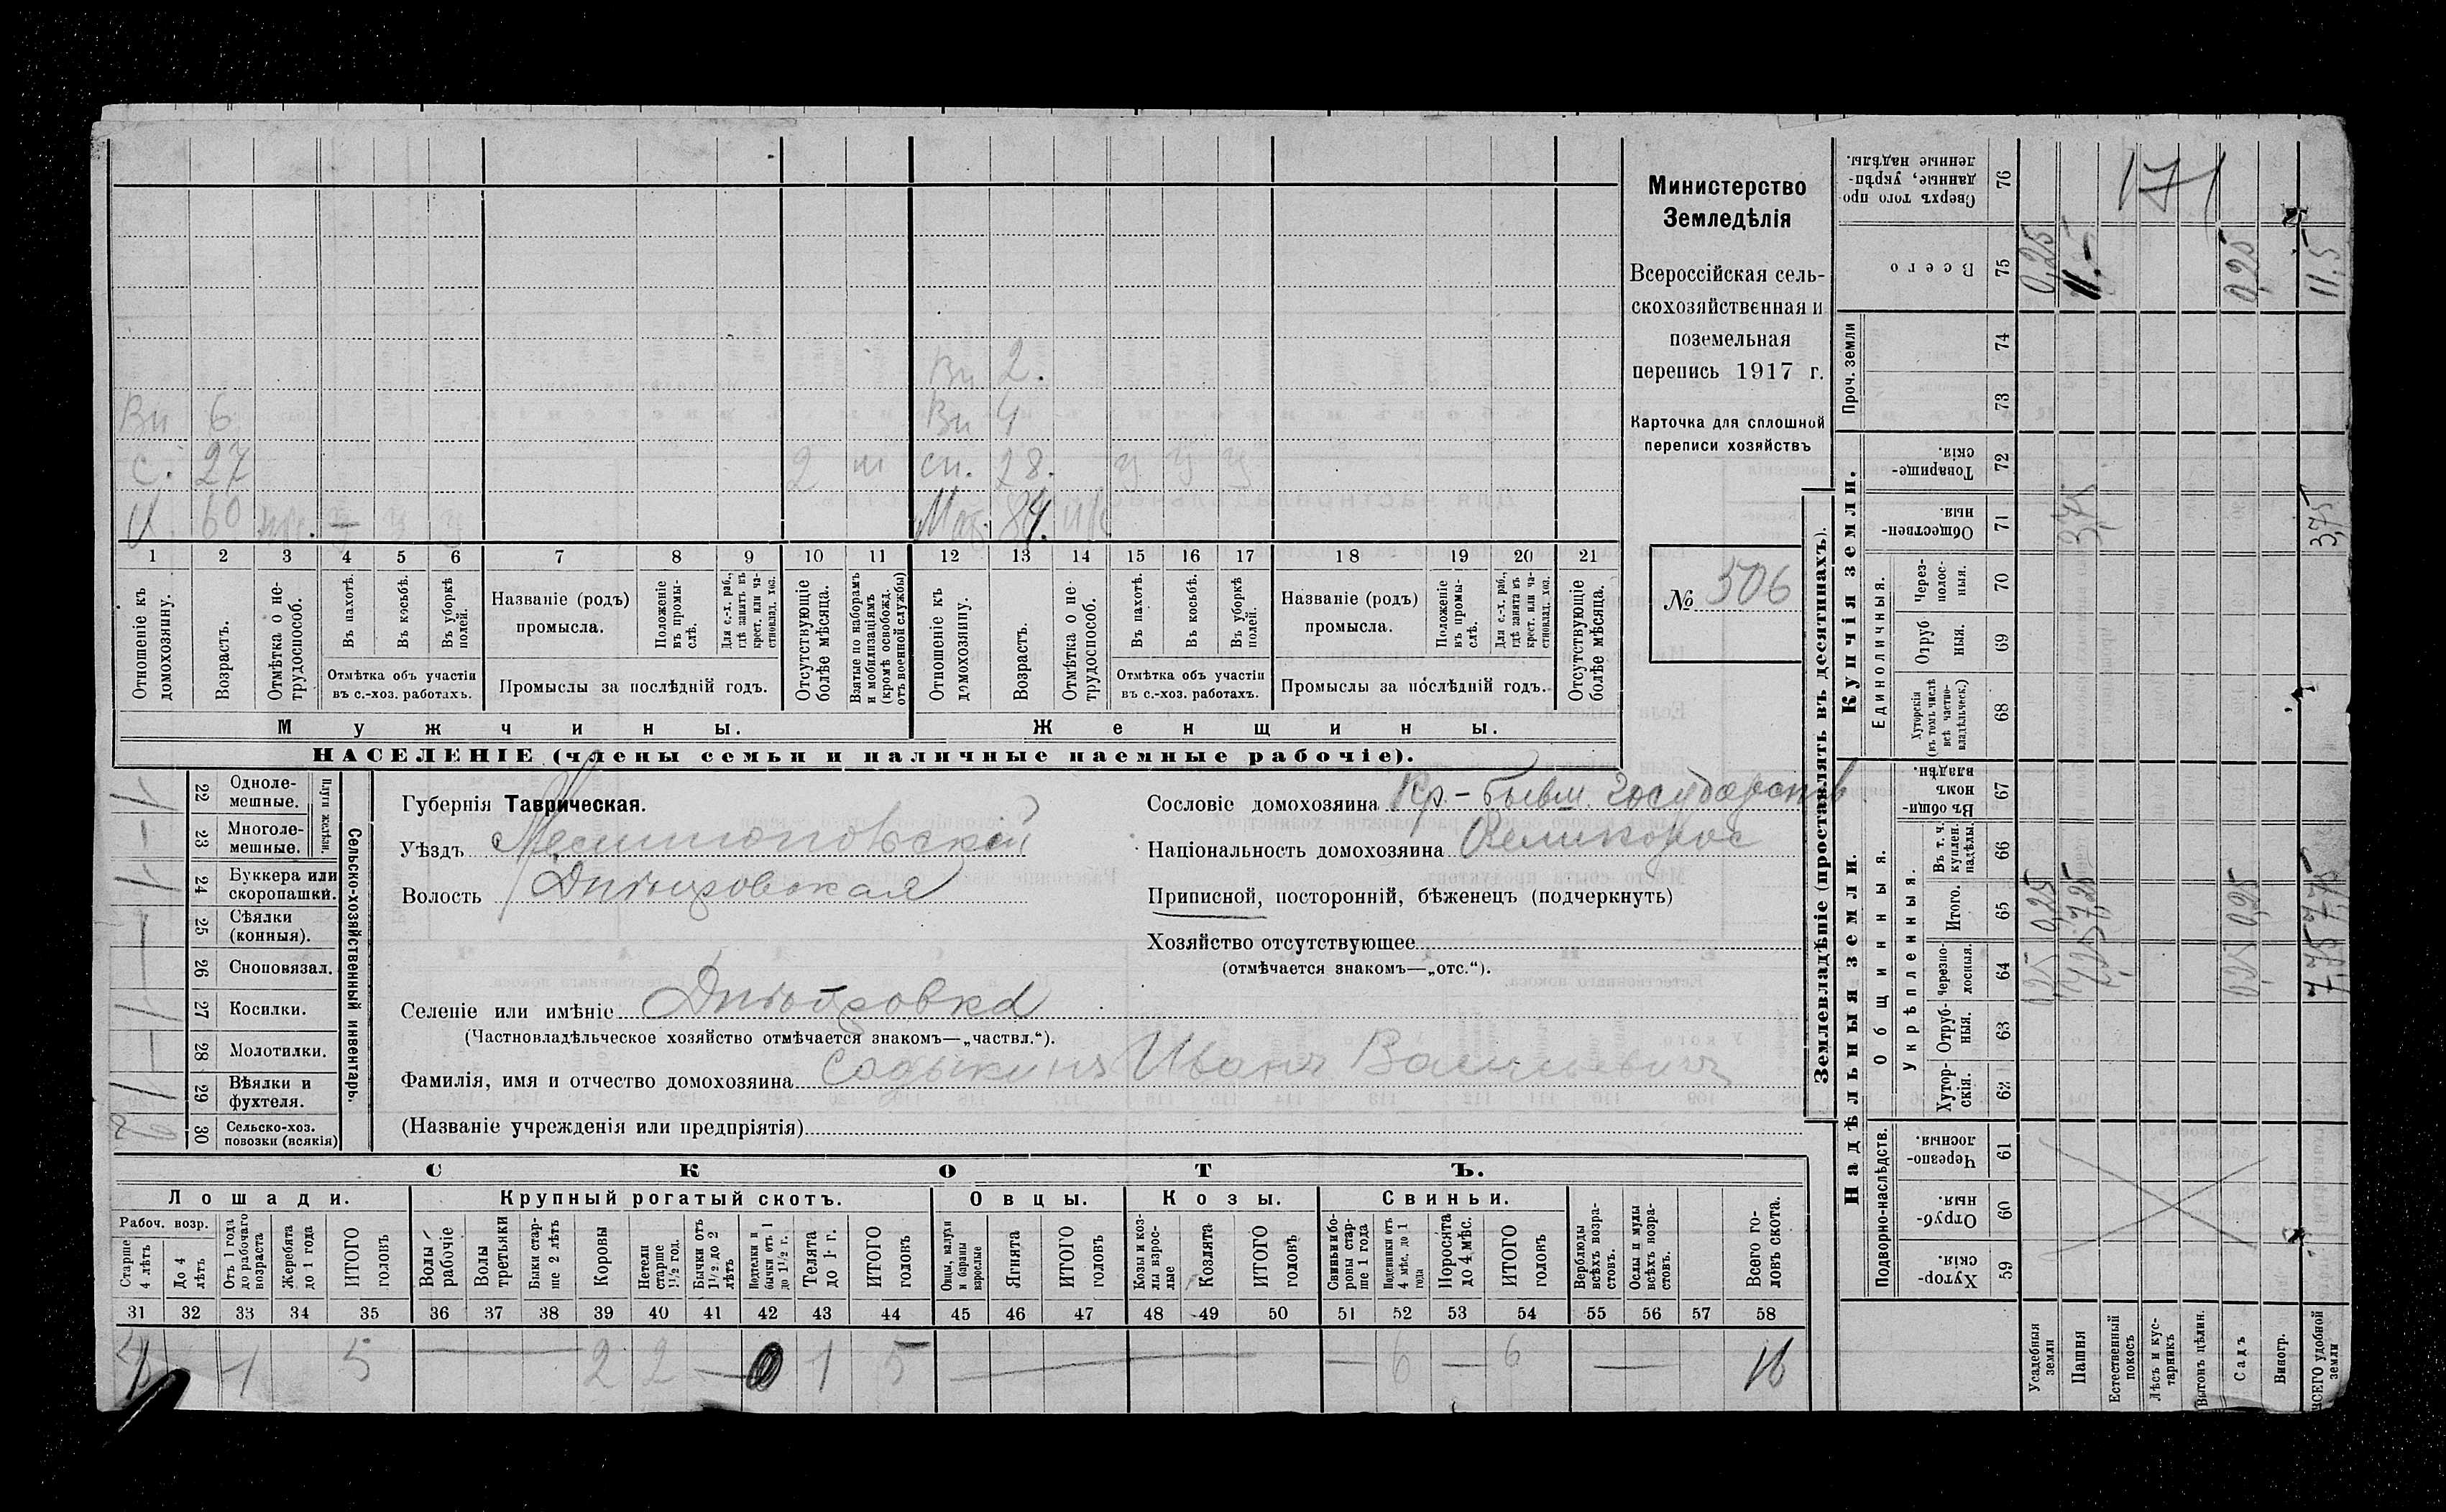 Министерство
Земледѣлія
Всероссійская сель-
скохозяйственная и
поземельная
перепись 1917 г.
Карточка для сплошной
переписи хозяйствъ
№ 506
Вн 2.
Вн 6 Вн 4
С. 27 2 м сн. 28. у у у
Х 60 Мат. 84.
1 2 3 4 5 6 7 8 9 10 11 12 13 14 15 16 17 18 19 20 21
Отношеніе къ домохозяину.
Возрастъ.
Отмѣтка о не-трудоспособ.
Въ пахотѣ.
Въ косьбѣ.
Въ уборкѣ полей.
Отмѣтка объ участіи
въ с.-хоз. работахъ.
Названіе (родъ)
промысла.
Положеніе въ промы-слѣ.
Для с.-х. раб., гдѣ занятъ въ крест. или ча-стновлад. хоз.
Промыслы за послѣдній годъ.
Отсутствующіе болѣе мѣсяца.
Взятые по наборамъ и мобилизаціямъ (кромѣ освобожд. отъ военной службы)
Отношеніе къ домохозяину.
Возрастъ.
Отмѣтка о не-трудоспособ.
Въ пахотѣ.
Въ косьбѣ.
Въ уборкѣ полей.
Отмѣтка объ участіи
въ с.-хоз. работахъ.
Названіе (родъ)
промысла.
Положеніе въ промы-слѣ.
Для с.-х. раб., гдѣ занята въ крест. или ча-стновлад. хоз.
Промыслы за послѣдній годъ.
Отсутствующіе болѣе мѣсяца.
Мужчины. Женщины.
НАСЕЛЕНІЕ (члены семьи и наличные наемные рабочіе).
Сельско-хозяйственный инвентарь.
Плуги желѣзн.
22 Одноле-мешные. 1
23 Многоле-мешные. —
24 Буккера или скоропашки. 1
25 Сѣялки (конныя). —
26 Сноповязал. —
27 Косилки. 1
28 Молотилки. —
29 Вѣялки и фухтеля. 1
30 Сельско-хоз. повозки (всякія) 2
Губернія Таврическая.
Уѣздъ Мелитопольскій
Волость Днѣпровская
Селеніе или имѣніе Днѣпровка
(Частновладѣльческое хозяйство отмѣчается знакомъ—„частвл.“).
Фамилія, имя и отчество домохозяина Садыкинъ Иванъ Васильевичъ
(Названіе учрежденія или предпріятія)
Сословіе домохозяина Кр.- бывш. государств
Національность домохозяина Великорос
Приписной, посторонній, бѣженецъ (подчеркнуть)
Хозяйство отсутствующее
(отмѣчается знакомъ—„отс.“).
СКОТЪ.
Лошади. Крупный рогатый скотъ. Овцы. Козы. Свиньи.
Рабоч. возр.
Старше 4 лѣтъ
До 4 лѣтъ
Отъ 1 года до рабочаго возраста
Жеребята до 1 года
ИТОГО головъ
Волы рабочіе
Волы третьяки
Быки стар-ше 2 лѣтъ
Коровы
Нетели старше 1½ год.
Бычки отъ 1½ до 2 лѣтъ
Подтелки и бычки отъ 1 до 1½ г.
Телята до 1 г.
ИТОГО головъ
Овцы, валухи и бараны взрослые
Ягнята
ИТОГО головъ
Козы и коз-лы взрос-лые
Козлята
ИТОГО головъ
Свиньи и бо-ровы стар-ше 1 года
Подсвинки отъ 4 мѣс. до 1 года
Поросята до 4 мѣс.
ИТОГО головъ
Верблюды всѣхъ возра-стовъ.
Ослы и мулы всѣхъ возра-стовъ.
Всего го-ловъ скота.
31 32 33 34 35 36 37 38 39 40 41 42 43 44 45 46 47 48 49 50 51 52 53 54 55 56 57 58
1 5 — 2 2 — 1 5 — — 6 — 6 — 16
Землевладѣніе (проставлять въ десятинахъ).
Надѣльныя земли. Купчія земли. Проч. земли
Подворно-наслѣдств.
Общинныя.
Укрѣпленныя.
Единоличныя.
Хутор-скія. 59
Отруб-ныя. 60
Черезпо-лосныя. 61
Хутор-скія. 62
Отруб-ныя. 63
Черезпо-лосныя. 64
Итого. 65
Въ т. ч. куплен. надѣлы. 66
Въ общи-номъ владѣн. 67
Хуторскія (въ томъ числѣ всѣ частно-владѣльческ.) 68
Отруб ныя. 69
Через-полос-ныя. 70
Обществен-ныя. 71
Товарище-скія. 72
73
74
Всего 75
Сверхъ того про-данные, укрѣп-ленные надѣлы. 76
Усадебныя земли 0,25 0,25 0,25
Пашня 7,25 7,25 3,75 11.-
Естественный покосъ
Лѣсъ и кус-тарникъ
Выгонъ цѣлин.
Садъ 0,25 0,25 0,25
Виногр.
ВСЕГО удобной земли 7,75 7,75 3,75 11,5
171